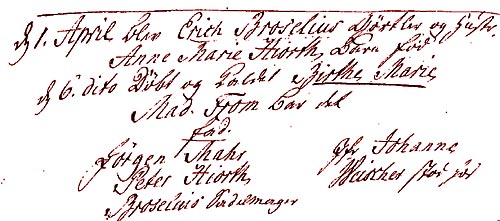 d 1. April blev Erich Broselius Börtler og Hustr.
Anne Marie Hiorth, Barn föd
d 6. dito Döbt og kaldet Birthe Marie
Mad. Trom bar det
fad.
Jörgen Mahr
Jfr Johanne
Peter Hiorth
Weischer stod hos
Broselius